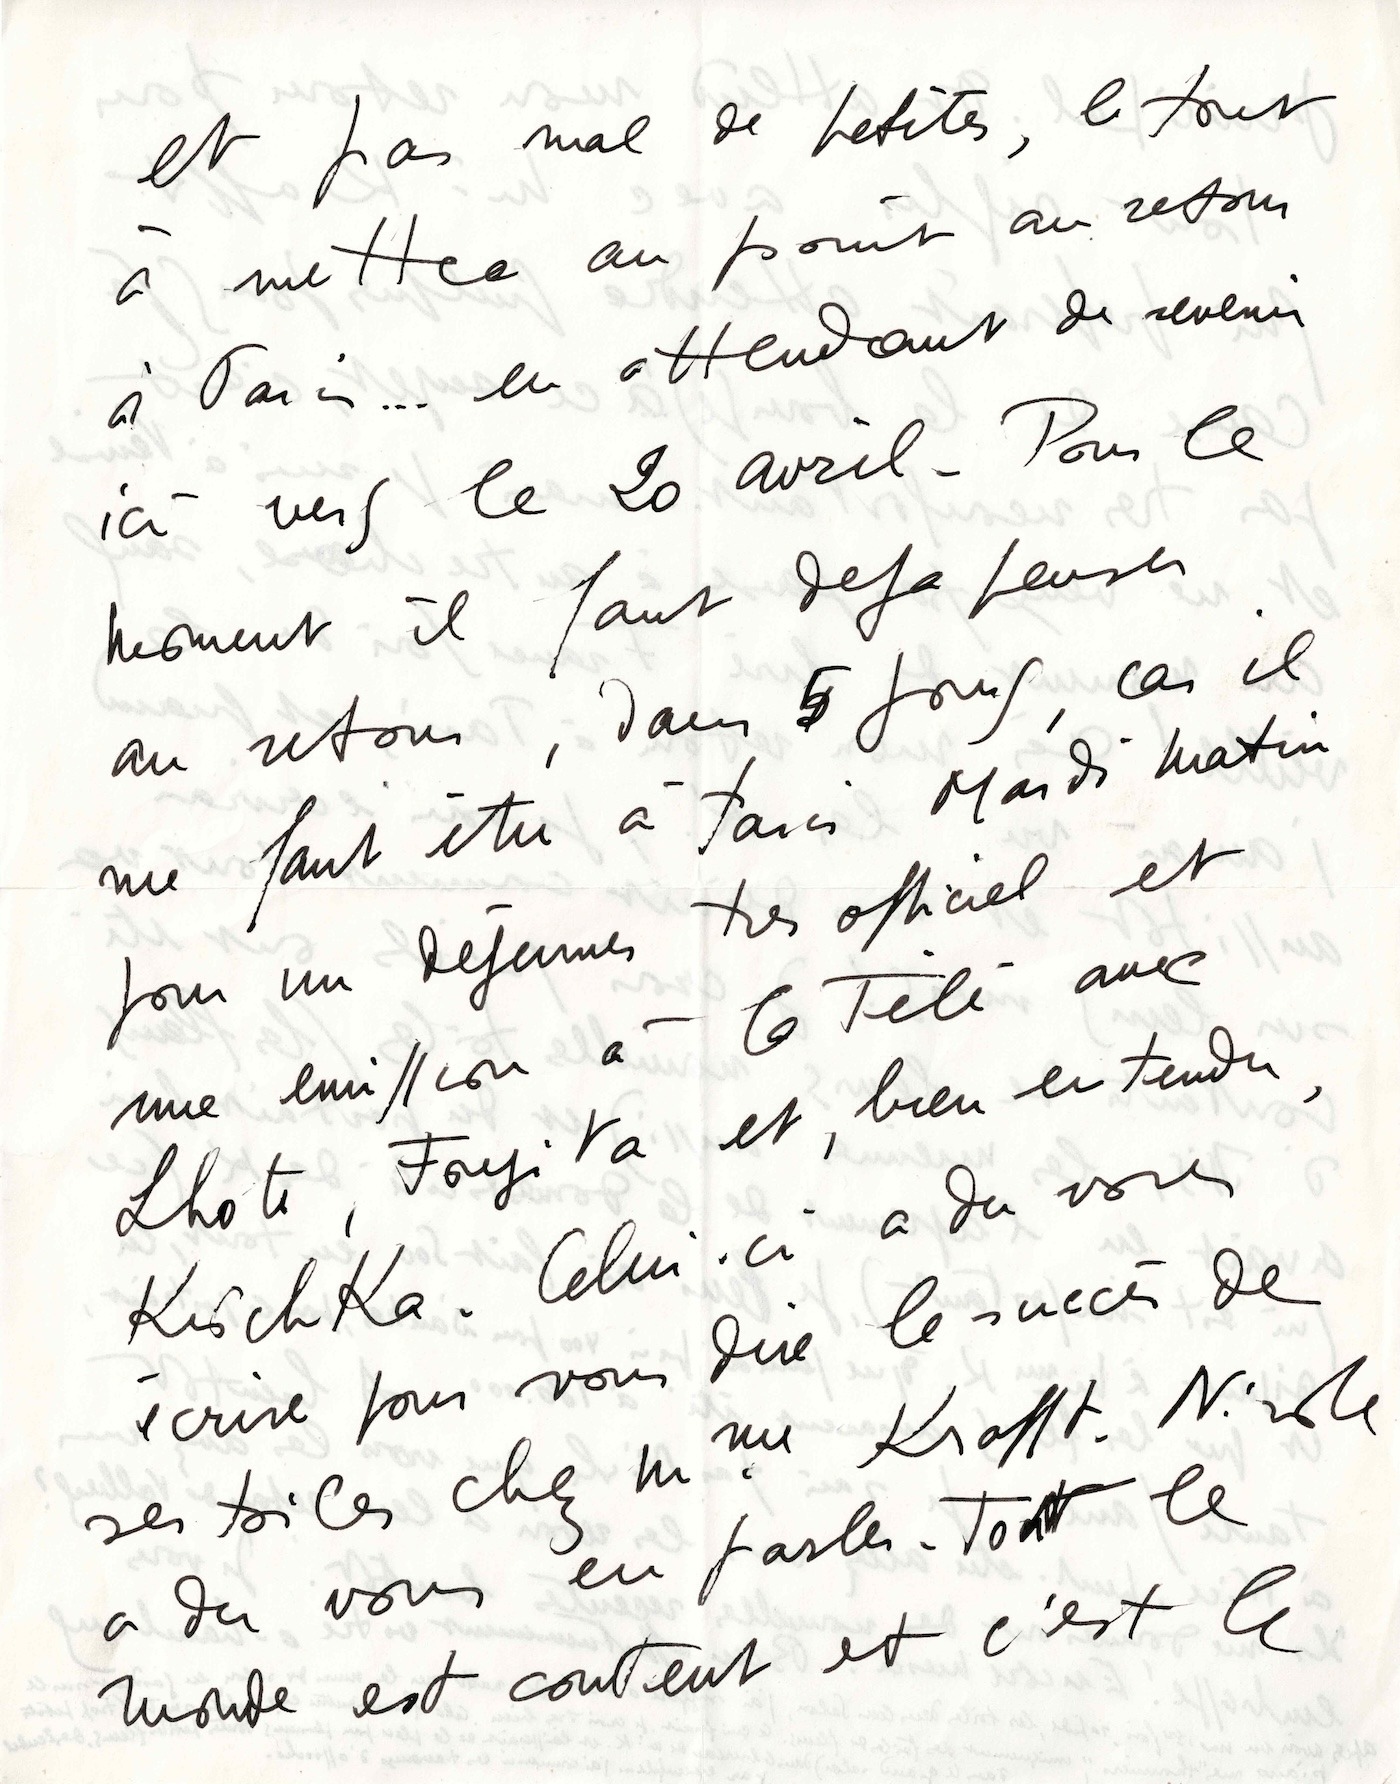 et pas mal de petites, le tout
à mettre au point au retour
à Paris... en attendant de revenir
ici vers le 20 avril - Pour le
moment il faut deja penser
au retour, dans 5 jours, car il
me faut être à Paris Mardi matin
pour un déjeuner tres officiel et
une emission à la Télé avec
Lhote, Foujita et, bien entendu,
Kischka. Celui-ci a du vous
écrire pour vous dire le succès de
ses toiles chez Mme Krafft. Nicole
a du vous en parler - Tout le
monde est content et c'est le